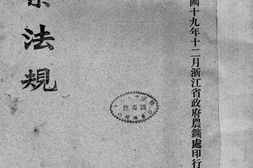 國十九年十二月浙江省政府農鑛處印行
法規